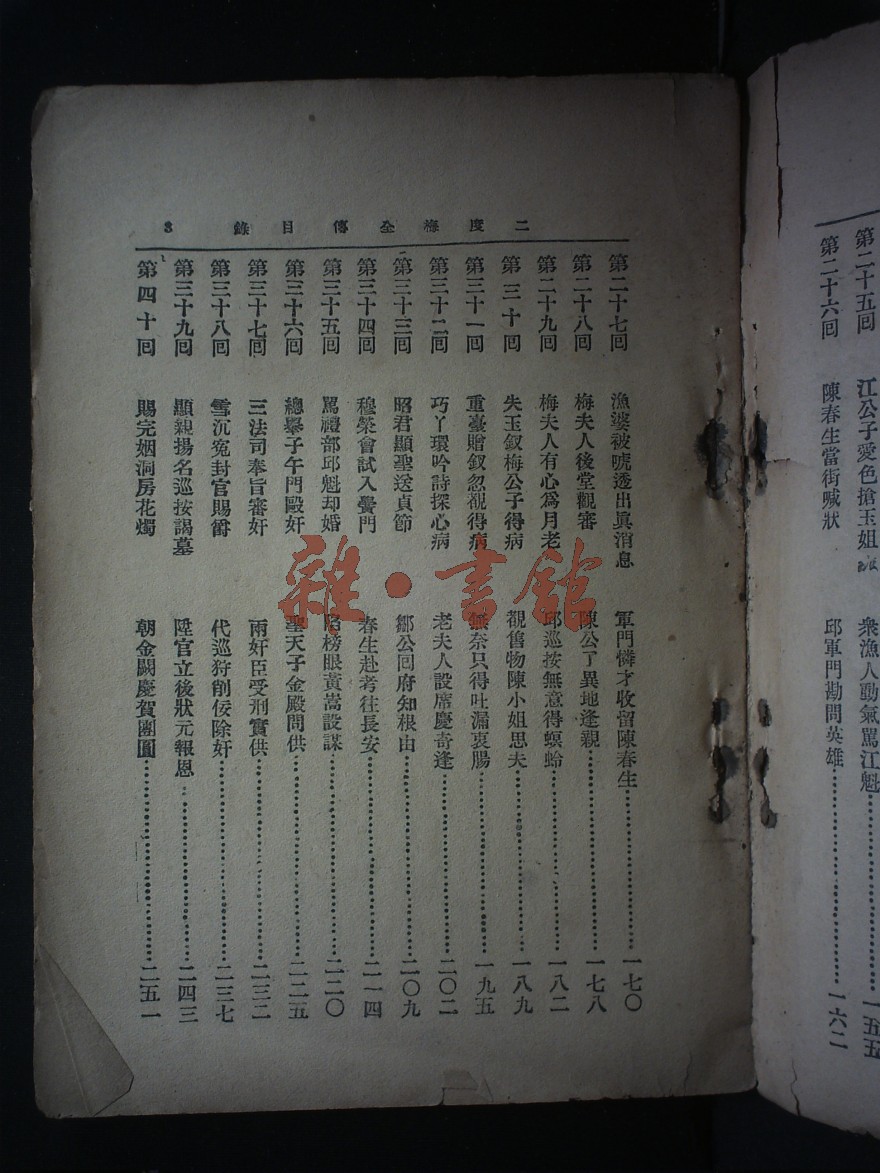 第二十五回 江公子愛色搶玉姐 衆漁人動氣罵江魁……一五五
第二十六回 陳春生當街喊狀 邱軍門勘問英雄……一六二
二度梅全傳目錄 3
第二十七回 漁婆被唬透出眞消息 軍門憐才收留陳春生……一七〇
第二十八回 梅夫人後堂觀審 陳公了異地逢親……一七八
第二十九回 梅夫人有心爲月老 邱巡按無意得螟蛉……一八二
第三十回 失玉釵梅公子得病 觀舊物陳小姐思夫……一八九
第三十一回 重臺贈釵忽覩得病 無奈只得吐漏衷腸……一九五
第三十二回 巧丫環吟詩探心病 老夫人設席慶奇逢……二〇二
第三十三回 昭君顯聖送貞節 鄒公回府知根由……二〇九
第三十四回 穆榮會試入黌門 春生赴考往長安……二一四
第三十五回 罵禮部邱魁却婚 陷榜眼黃嵩設謀……二二〇
第三十六回 總舉子午門毆奸 聖天子金殿問供……二二五
第三十七回 三法司奉旨審奸 兩奸臣受刑實供……二三二
第三十八回 雪沉寃封官賜爵 代巡狩削佞除奸……二三七
第三十九回 顯親揚名巡按謁墓 陞官立後狀元報恩……二四三
第四十回 賜完姻洞房花燭 朝金闕慶賀團圓……二五一
雜·書館